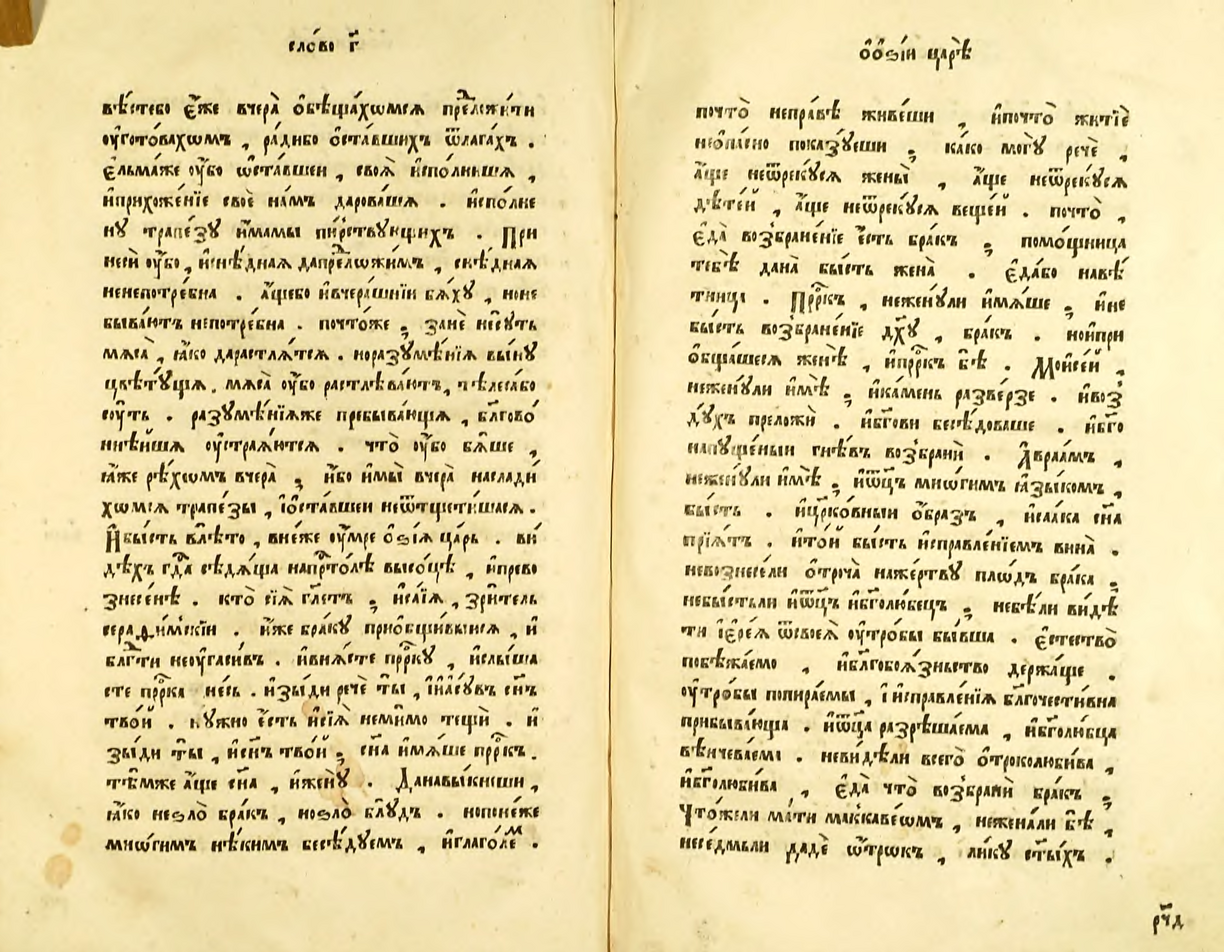 сло́во г҃
вѣ́стебо є҆́же вчера̀ ѻ҆бѣща́хѡмсѧ прⷣеложи́ти
оу҆гото́вахѡмъ , ра́дибо ѻ҆ста́вшихъ ѿлага́хъ .
є҆льма́же оу҆́бо ѡ҆ста́вшеи , своѧ̀ и҆спо́лнишѧ ,
и҆прихоже́нїе своѐ на́мъ дарова́шѧ . и҆спо́лне
нꙋ трапе́зꙋ и҆́мамы пи́рствꙋющихъ . При
неси́ оу҆́бо , и҆снѣ́днаѧ дапрⷣело́жимъ , снѣ́днаѧ
ненепотре́бна . а҆́щебо и҆вчера́шнїи бѧ́хꙋ , ноне
быва́ютъ непотре́бна . почто́же ; занѐ несꙋ́ть
мѧса̀ , ꙗ҆́ко дарастлѧ́тсѧ . норазꙋмѣ́нїѧ вы́нꙋ
цвѣтꙋ́щїѧ . мѧса̀ оу҆́бо растлѣва́ютъ , тѣлеса́бо
сꙋ́ть . разꙋмѣ́нїѧже пребыва́ющїѧ , бл҃гово́
ннѣ́йшѧ оу҆стра́ѧютсѧ . что̀ оу҆́бо бѧ́ше ,
ꙗ҆́же рѣ́хѡмъ вчера̀ ; и҆́бо и҆мы̀ вчера̀ наслади́
хѡмсѧ трапе́зы , і҆ѻ҆ста́вшеи неѿтщети́шасѧ .
И҆бы́сть влѣ́то , вне́же оу҆́мре ѻ҆ѕі́ѧ ца́рь . ви́
дѣхъ гдⷭ҇а сѣдѧ́ща напрⷭ҇то́лѣ высо́цѣ , и҆прево
знесе́нѣ . кто̀ сїѧ̀ гл҃етъ ; и҆са́їѧ , зри́тель
серафи́мскїи . и҆́же бра́кꙋ приѻбщи́выисѧ , и҆
блгⷣти неоу҆гаси́въ . и҆внѧ́сте прⷪ҇ркꙋ , и҆слы́ша
сте прⷪ҇рка несь . и҆зы́ди речѐ ты̀ , і҆и҆асꙋ́въ сн҃ъ
тво́й . нꙋ́жно є҆́сть и҆сїѧ̀ неми́мо тещѝ . и҆
зы́ди ты̀ , и҆сн҃ъ тво́й ; сн҃а и҆мѧ́ше прⷪ҇ркъ .
тѣ́мже а҆́ще сн҃а , и҆женꙋ̀ . Данавы́кнеши ,
ꙗ҆́ко неѕло̀ бра́къ , ноѕло̀ блꙋ́дъ . нопоне́же
мнѡ́гимъ нѣ́кимъ бесѣ́дꙋемъ , и҆глаго́леⷨ .
ѻ҆ѻ҆ѕі́и царѣ̀
почто̀ непра́вѣ живе́ши , и҆почто̀ житїѐ
неѻ҆па́сно показꙋ́еши ; ка́ко могꙋ̀ речѐ ,
а҆́ще неѿрекꙋ́сѧ жены̀ , а҆́ще неѿрекꙋ́сѧ
дѣте́й , а҆́ще неѿрекꙋ́сѧ веще́й . почто̀ ,
є҆да̀ возбране́нїе є҆́сть бра́къ ; помо́щница
тебѣ̀ дана̀ бы́сть жена̀ . є҆да́бо навѣ́
тница . Прⷪ҇ркъ , неженꙋ́ли и҆мѧ́ше ; и҆не
бы́сть возбране́нїе дх҃ꙋ , бра́къ . нои҆при
ѻ҆бща́шесѧ женѣ̀ , и҆прⷪ҇ркъ бѣ̀ . Моѷсе́й ,
неженꙋ́ли и҆мѣ̀ ; и҆ка́мень разве́рзе . и҆воз̾
дꙋ́хъ преложѝ . и҆бг҃ови бесѣ́доваше . и҆бг҃о
напꙋще́ныи гнѣ́въ возбранѝ . А҆враа́мъ ,
неженꙋ́ли и҆мѣ̀ ; и҆ѻ҆ц҃ъ мнѡ́гимъ ꙗ҆зы́комъ ,
бы́сть . и҆црⷪ҇ко́вныи ѻ҆́браз̾ъ , и҆саа́ка сн҃а
прїѧ́тъ . и҆то́й бы́сть и҆справле́нїемъ вина̀ .
невознесе́ли ѻ҆троча̀ наже́ртвꙋ пло́дъ бра́ка ;
небы́стьли и҆ѻ҆ц҃ъ и҆бг҃олю́бецъ ; небѣ́ли ви́дѣ
ти і҆ере́ѧ ѿсвоеѧ̀ оу҆тро́бы бы́вша . є҆стество̀
побѣжа́емо , и҆благобоѧ́зньство держа́ще .
оу҆тро́бы попира́емы , і҆и҆справле́нїѧ бл҃гочести́вна
прибыва́юща . и҆ѻ҆ц҃а разрѣша́ема , и҆бг҃олю́бца
вѣнчева́ема . неви́дѣли всего̀ ѻ҆троколю́бива ,
и҆бг҃олю́бива , є҆да̀ что̀ возбранѝ бра́къ ;
Что́жели ма́ти маккавѐѡмъ , нежена́ли бѣ̀ ,
несе́дмьли дадѐ ѻ҆́трѡкъ , ли́кꙋ ст҃ы́хъ .
рч҃д